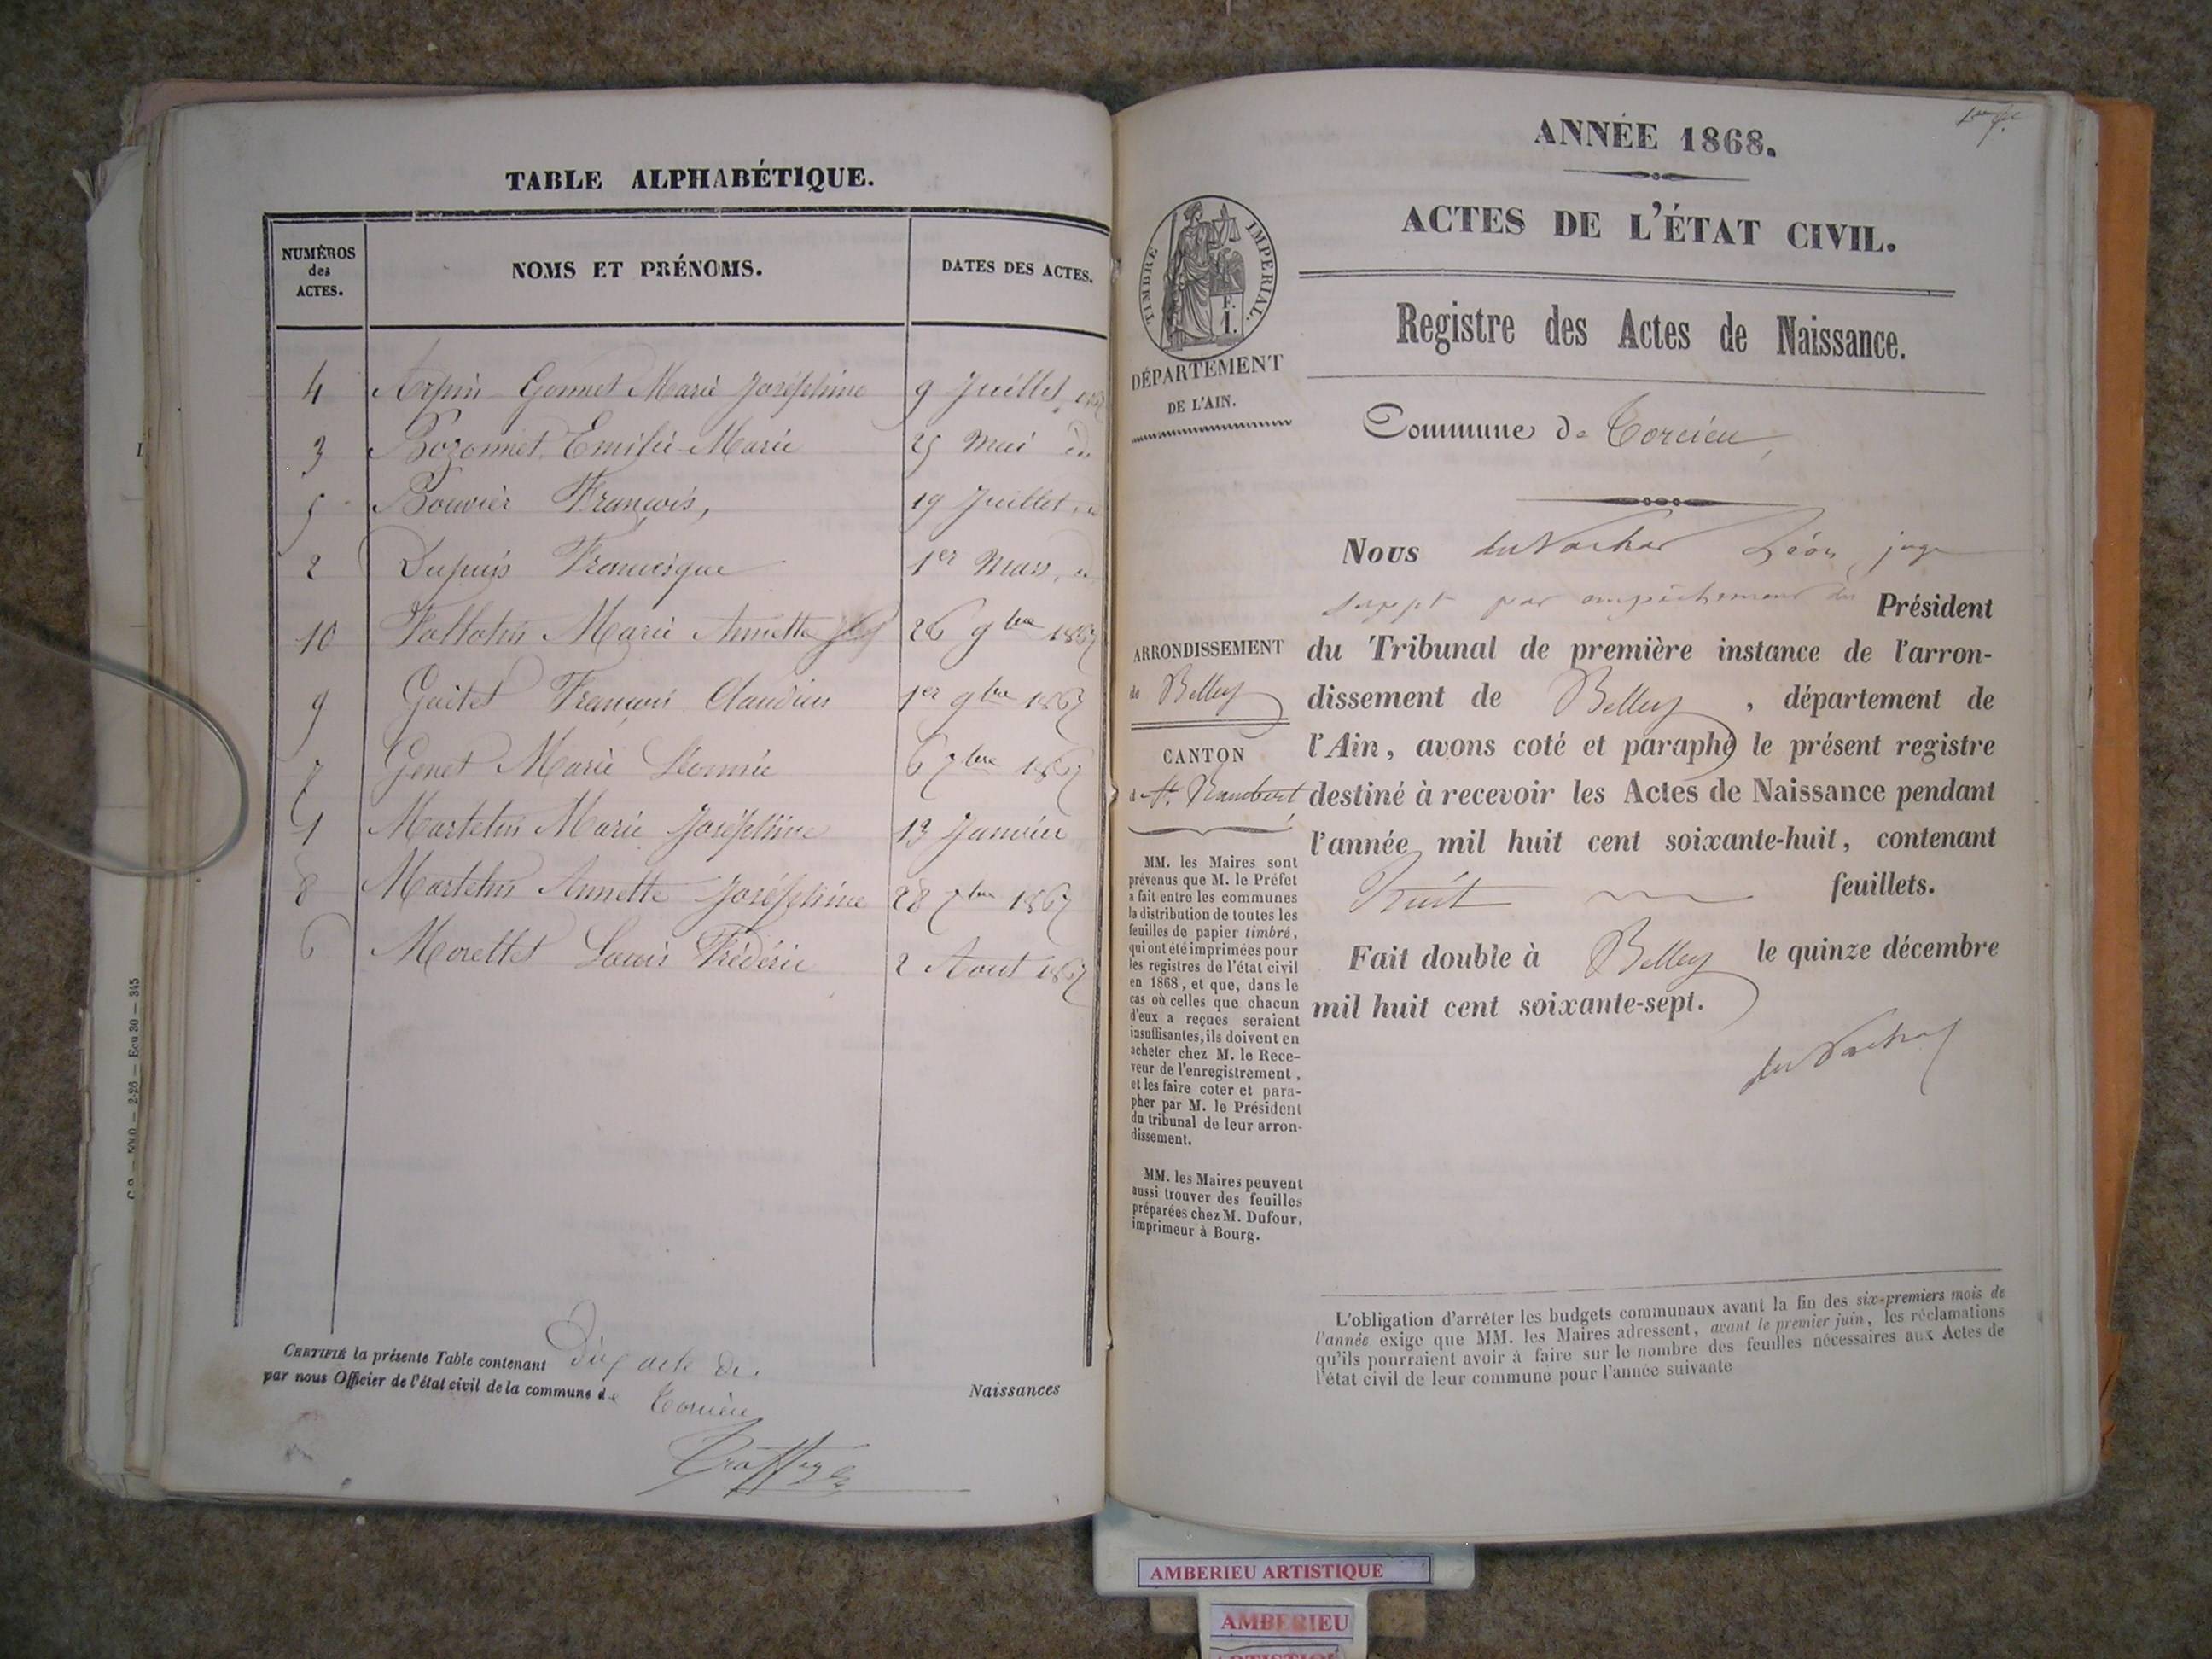 TABLE ALPHABÉTIQUE.
NUMÉROS des ACTES.
NOMS ET PRÉNOMS.
DATES DES ACTES.
4 Arpin Gonnet Marie Joséphine 9 Juillet 1867
3 Bozonnet Emilie Marie 25 Mai
5 Bouvier François, 19 Juillet
2 Dupuis Francisque 1er Mars
10 Marie Annette 26 9bre 1867
9 Goitet François Claudius 1er 9bre 1867
7 Genet Marie Léonnie 6 7bre 1867
1 Martelin Marie Joséphine 13 Janvier
8 Martelin Annette Joséphine 28 7bre 1867
6 Morettet Louis Frédéric 2 Aout 1867
CERTIFIÉ la présente Table contenant dix acte de
Naissances
par nous Officier de l'état civil de la commune de Torcieu
C 9 — 5000 — 2-26 — Ecu 30 — 345
ANNÉE 1868.
ACTES DE L'ÉTAT CIVIL.
TIMBRE IMPERIAL.
F.
1.
Registre des Actes de Naissance.
DÉPARTEMENT
DE L'AIN.
Commune de Torcieu,
Nous Léon, juge
suppt par empêchement du Président
ARRONDISSEMENT
de Belley
CANTON
d St. Rambert,
du Tribunal de première instance de l'arron-
dissement de Belley, département de
l'Ain, avons coté et paraphé le présent registre
destiné à recevoir les Actes de Naissance pendant
l'année mil huit cent soixante-huit, contenant
huit feuillets.
Fait double à Belley le quinze décembre
mil huit cent soixante-sept.
MM. les Maires sont
prévenus que M. le Préfet
a fait entre les communes
la distribution de toutes les
feuilles de papier timbré,
qui ont été imprimées pour
les registres de l'état civil
en 1868, et que, dans le
cas où celles que chacun
d'eux a reçues seraient
insuffisantes, ils doivent en
acheter chez M. le Rece-
veur de l'enregistrement,
et les faire coter et para-
pher par M. le Président
du tribunal de leur arron-
dissement.
MM. les Maires peuvent
aussi trouver des feuilles
préparées chez M. Dufour,
imprimeur à Bourg.
L'obligation d'arrêter les budgets communaux avant la fin des six premiers mois de
l'année exige que MM. les Maires adressent, avant le premier juin, les réclamations
qu'ils pourraient avoir à faire sur le nombre des feuilles nécessaires aux Actes de
l'état civil de leur commune pour l'année suivante
AMBERIEU ARTISTIQUE
AMBERIEU
ARTISTIQUE